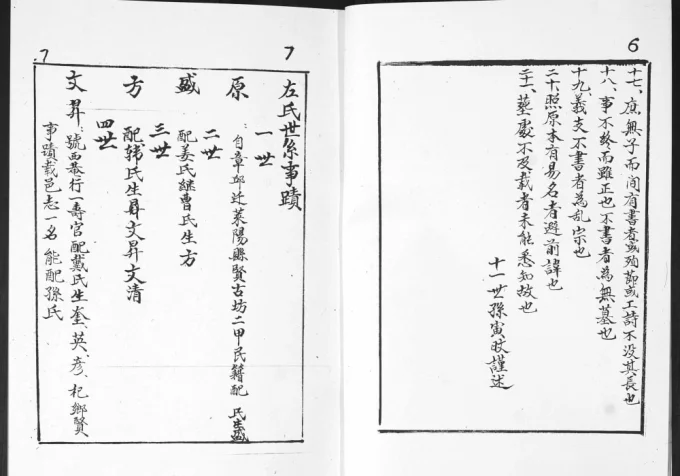 6
十七、庶無子而间有書者或殉節或工詩不没其長也
十八、事不終而雖正也不書者為無墓也
十九、義支不書者為乱宗也
二十、照原本有易名者避前諱也
二十一、墓處不及載者未能悉知故也
十一世孫寅 謹述
7
左氏世系事蹟
一世
原:自章邱迁萊陽縣賢古坊二甲民籍配 氏生盛
二世
盛 配姜氏継曹氏生方
三世
方 配韩氏生昇文昇文清
四世
文昇:號西菴行一壽官配戴氏生奎、英、彦、杞鄉賢
事蹟載邑志一名 能配孫氏
.7